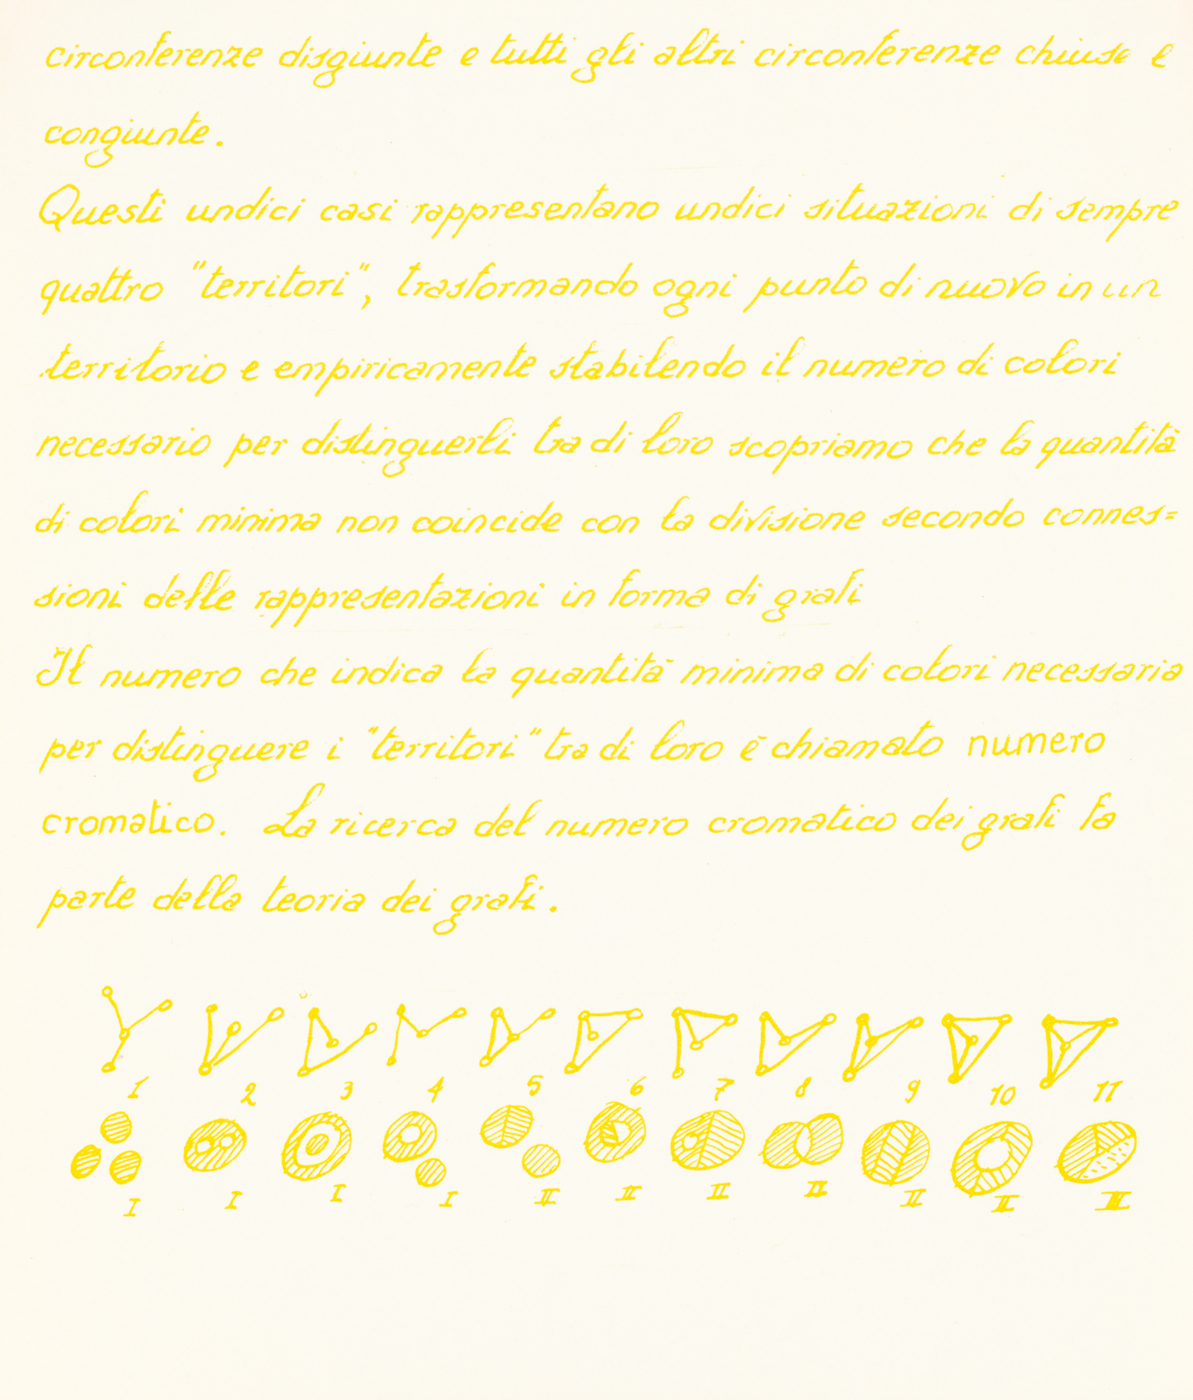 circonferenze disgiunte e tutti gli altri circonferenze chiuse e
congiunte.
Questi undici casi rappresentano undici situazioni di sempre
quattro "territori", trasformando ogni punto di nuovo in un
territorio e empiricamente stabilendo il numero di colori
necessario per distinguerli tra di loro scopriamo che la quantità
di colori minima non coincide con la divisione secondo connes=
sioni delle rappresentazioni in forma di grafi
Il numero che indica la quantità minima di colori necessaria
per distinguere i "territori" tra di loro è chiamato numero
cromatico. La ricerca del numero cromatico dei grafi fa
parte della teoria dei grafi.
1 2 3 4 5 6 7 8 9 10 11
I I I I II II II II II II III